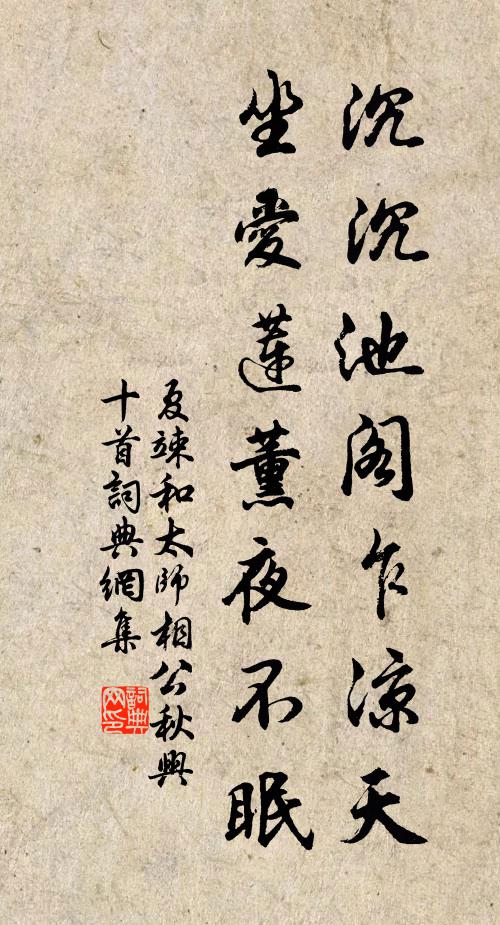 沉沉池阁乍涼天
坐愛蓮薰夜不眠
夏竦和太師相公秋興
十首詞典網集
詞典
网印